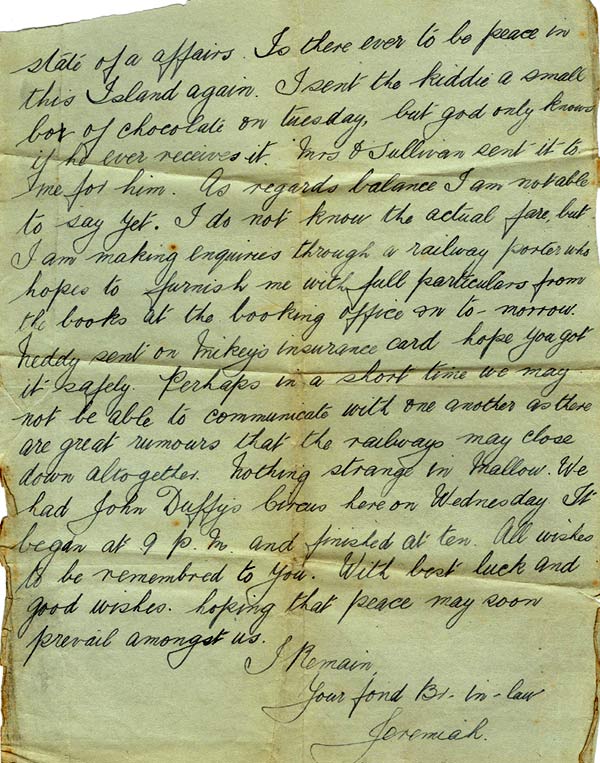 state of a affairs. Is there ever to be peace in
this Island again. I sent the kiddie a small
box of chocolate on tuesday, but god only knows
if he ever receives it. Mrs O Sullivan sent it to
me for him. As regards balance I am not able
to say yet. I do not know the actual fare, but
I am making enquiries through a railway porter who
hopes to furnish me with full particulars from
the books at the booking office on to-morrow.
Neddy sent on Mikey's insurance card hope you got
it safely. Perhaps in a short time we may
not be able to communicate with one another as there
are great rumours that the railways may close
down altogether. Nothing strange in Mallow. We
had John Duffys Circus here on Wednesday. It
began at 9 P.M. and finished at ten. All wishes
to be remembred to you. With best luck and
good wishes. hoping that peace may soon
prevail amongst us.
I Remain
Your fond Br-in-law
Jeremiah.